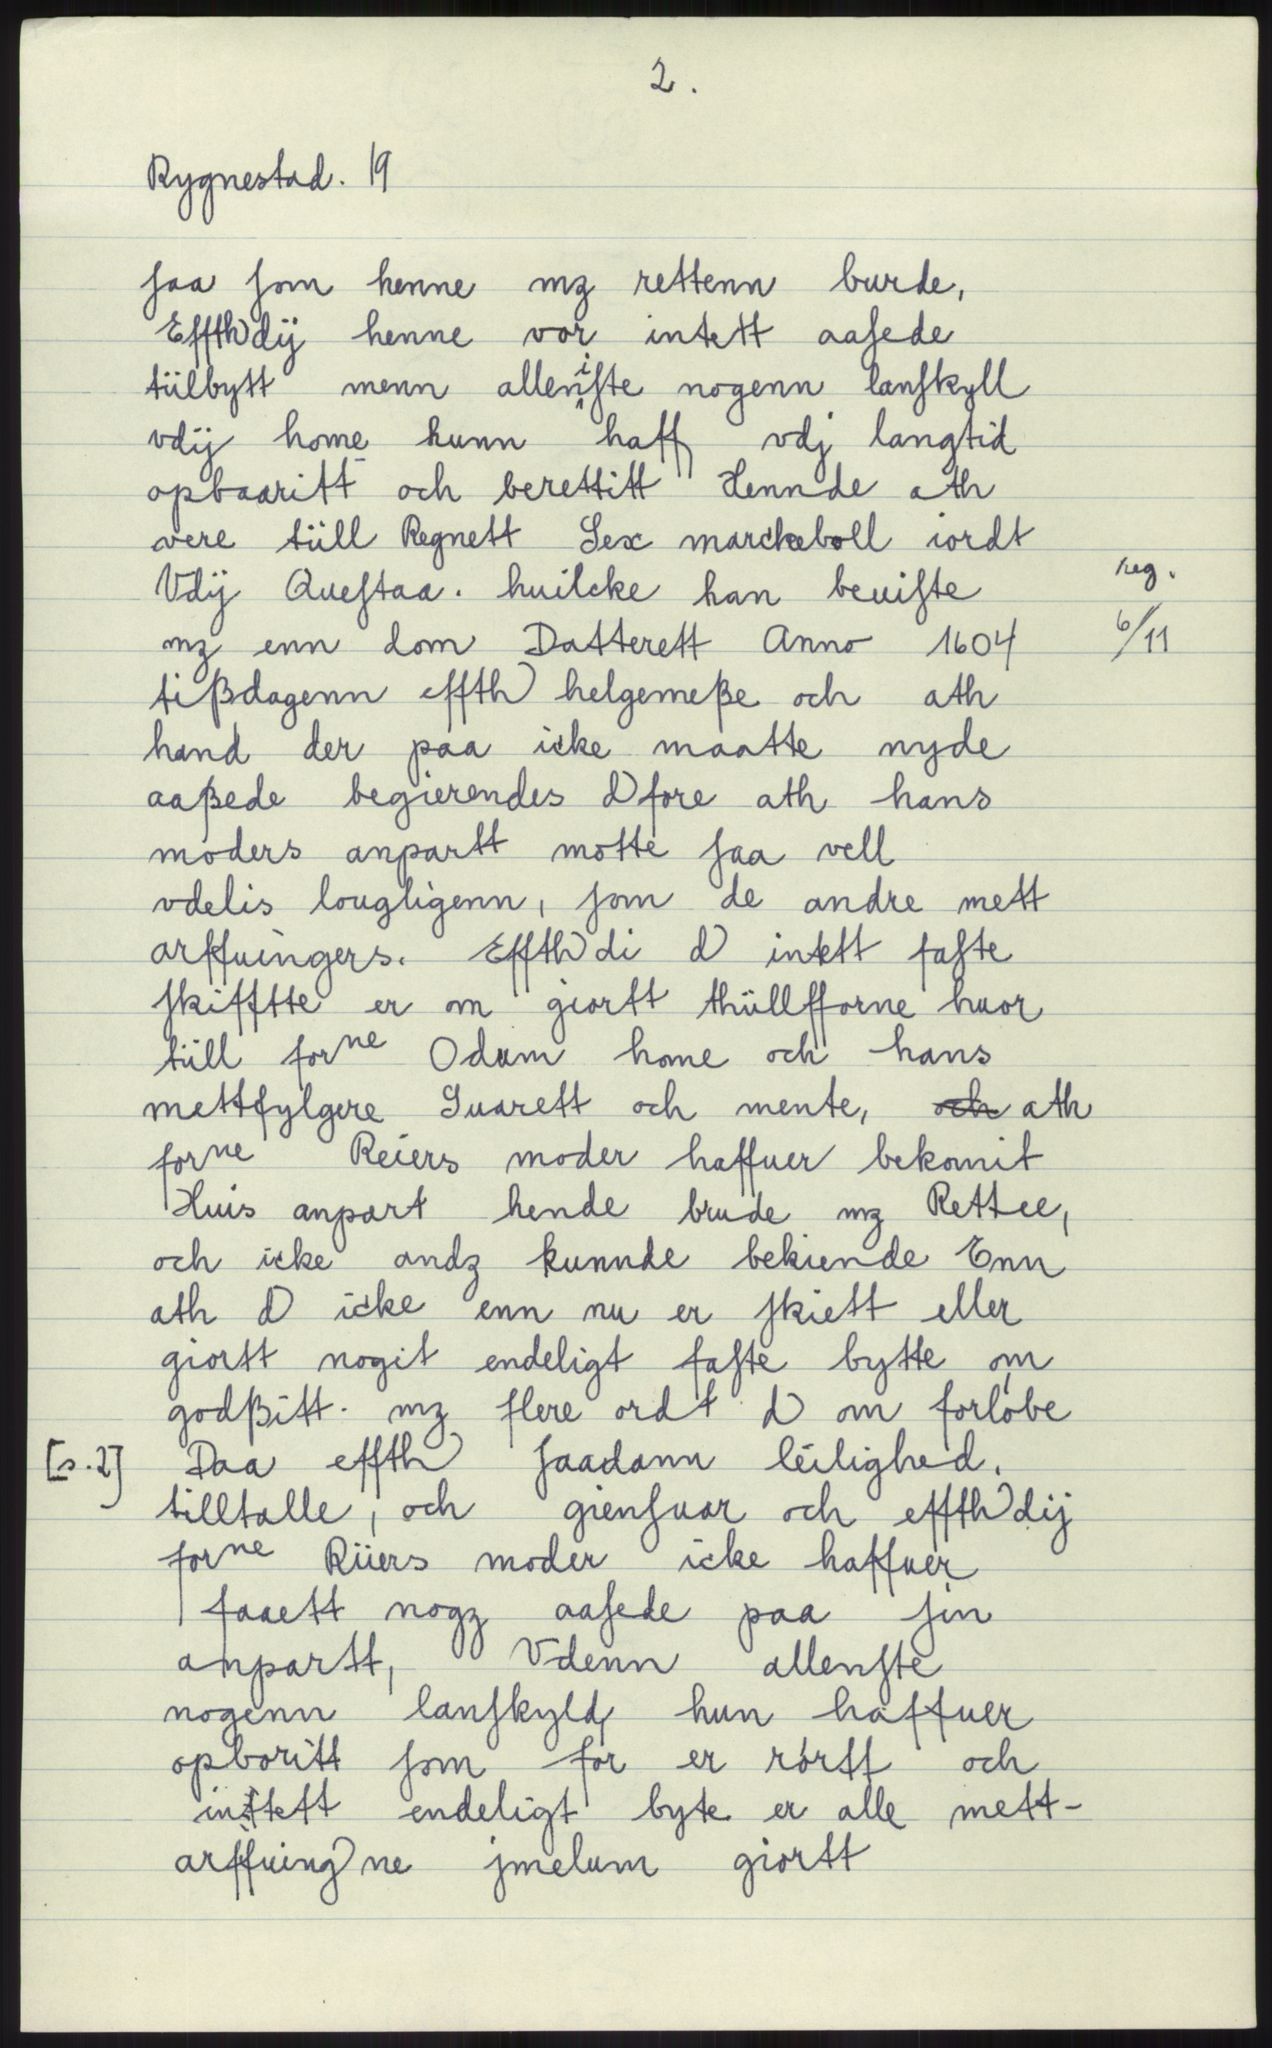 2.
Rygnestad. 19
saa som henne mz rettenn burde,
Effth dij henne vor intett aasede
tüllbytt menn alleniste nogenn lanskyll
vdij home hunn haff vdj langtid
opbaaritt och berettitt Hennde ath
vere tüll Regnett Sex marckeboll iordt
Vdij Questaa. huilcke han beuiste
reg.
mz enn dom Datterett Anno 1604
6/11
tißdagenn effth helgemeße och ath
hand der paa icke maatte nyde
aaßede begierendes D fore ath hans
moders anpartt motte saa vell
vdelis lougligenn, som de andre mett
arffuingers. Effth di D intett faste
skifftte er om giortt thüllfforne huor
tüll forne Odum home och hans
mettfylgere Suarett och mente, och ath
forne Reiers moder haffuer bekomit
Huis anpart hende brude mz Rettee,
och icke andz kunnde bekiende Enn
ath D icke enn nu er skiett eller
giortt nogit endeligt faste bytte om
godßitt. mz flere ordt D om forløbe
[s.2] Daa effth saadann leilighed.
tilltalle, och giensuar och effth dij
forne Rüers moder icke haffuer
faaett nogz aasede paa sin
anpartt, Vdenn allenste
nogenn lanskyld, hun haffuer
opboritt som for er rørtt och
inttett endeligt byte er alle mett-
arffuing ne jmelum giortt